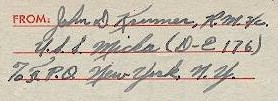 FROM: John D Kremer, R.M.3/c
U.S.S. Micka (D-E 176)
℅ F.P.O. New York, N.Y.